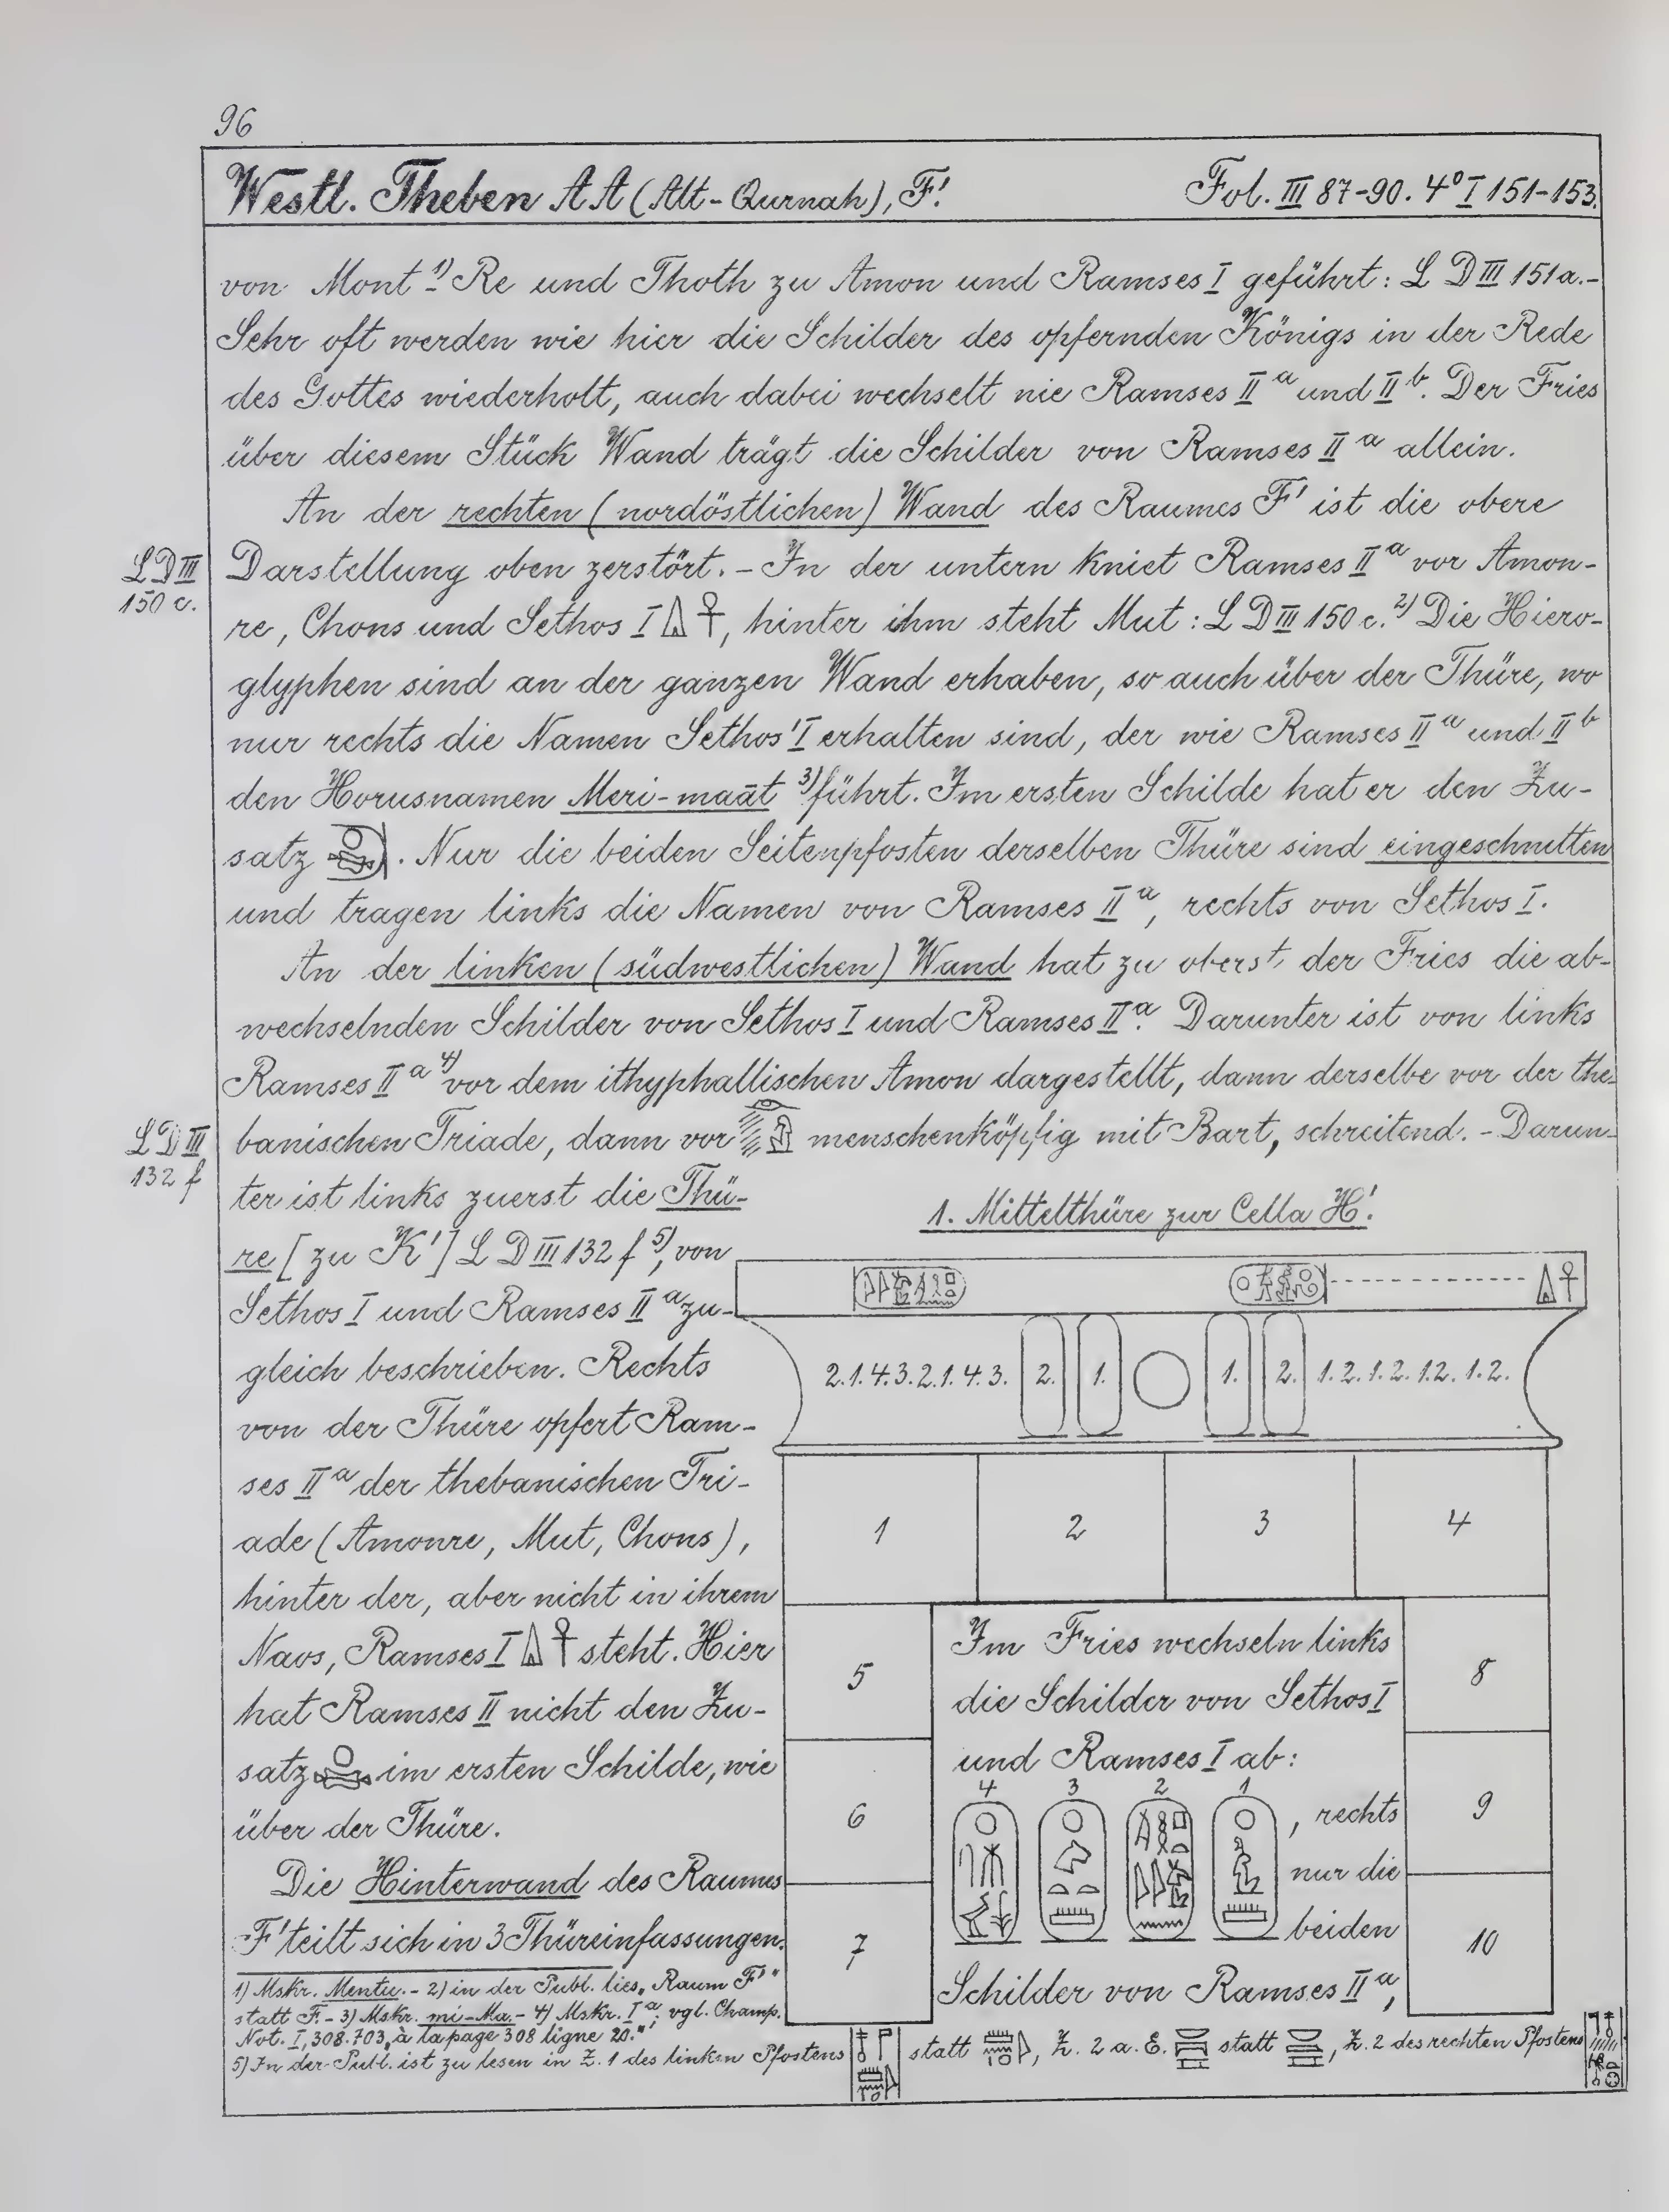 96
Westl. Theben AA (Alt-Qurnah), F'. Fol. III 87-90. 4° I 151-153.
von Mont ¹⁾ Re und Thoth zu Amon und Ramses I geführt: L D III 151 a.-
Sehr oft werden wie hier die Schilder des opfernden Königs in der Rede
des Gottes wiederholt, auch dabei wechselt nie Ramses II ᵃ und II ᵇ. Der Fries
über diesem Stück Wand trägt die Schilder von Ramses II ᵃ allein.
An der rechten (nordöstlichen) Wand des Raumes F' ist die obere
LD III
150 c.
Darstellung oben zerstört. - In der untern kniet Ramses II ᵃ vor Amon-
re, Chons und Sethos I, hinter ihm steht Mut: L D III 150 c. ²⁾ Die Hiero-
glyphen sind an der ganzen Wand erhaben, so auch über der Thüre, wo
nur rechts die Namen Sethos' I erhalten sind, der wie Ramses II ᵃ und II ᵇ
den Horusnamen Meri-maāt ³⁾ führt. Im ersten Schilde hat er den Zu-
satz. Nur die beiden Seitenpfosten derselben Thüre sind eingeschnitten
und tragen links die Namen von Ramses II ᵃ, rechts von Sethos I.
An der linken (südwestlichen) Wand hat zu oberst der Fries die ab-
wechselnden Schilder von Sethos I und Ramses II ᵃ. Darunter ist von links
Ramses II ᵃ ⁴⁾ vor dem ithyphallischen Amon dargestellt, dann derselbe vor der the-
LD III
132 f
banischen Triade, dann vor menschenköpfig mit Bart, schreitend. - Darun-
ter ist links zuerst die Thü-
re [zu K'] L D III 132 f ⁵⁾, von
Sethos I und Ramses II ᵃ zu-
gleich beschrieben. Rechts
von der Thüre opfert Ram-
ses II ᵃ der thebanischen Tri-
ade (Amonre, Mut, Chons),
hinter der, aber nicht in ihrem
Naos, Ramses I steht. Hier
hat Ramses II nicht den Zu-
satz im ersten Schilde, wie
über der Thüre.
Die Hinterwand des Raumes
F' teilt sich in 3 Thüreinfassungen.
1. Mittelthüre zur Cella H'.
2. 1. 4. 3. 2. 1. 4. 3. 2. 1. 1. 2. 1. 2. 1. 2. 1. 2. 1. 2.
1 2 3 4
5 8
6 9
7 10
Im Fries wechseln links
die Schilder von Sethos I
und Ramses I ab:
4 3 2 1
, rechts
nur die
beiden
Schilder von Ramses II ᵃ,
1) Mskr. Mentu. - 2) in der Publ. lies „Raum F'"
statt F. - 3) Mskr. mi-Ma. - 4) Mskr. I ᵃ; vgl. Champ.
Not. I, 308. 703, „à la page 308 ligne 20."
5) In der Publ. ist zu lesen in Z. 1 des linken Pfostens statt, Z. 2 a. E. statt, Z. 2 des rechten Pfostens